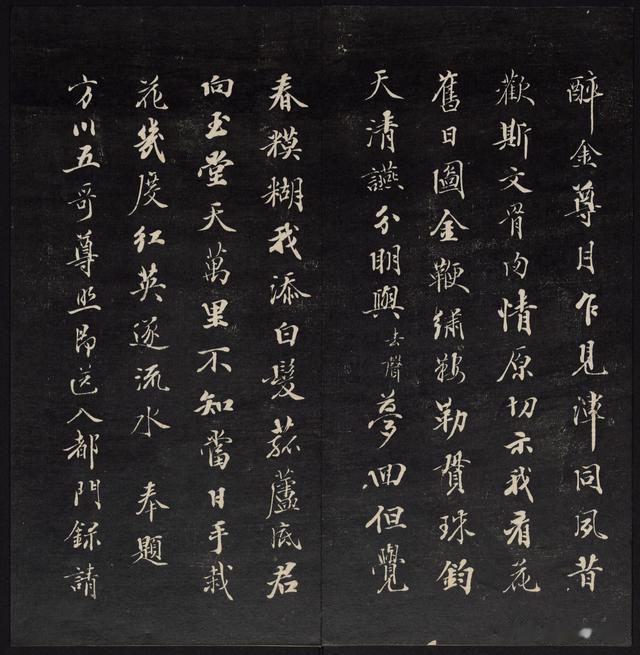 醉金尊月乍見渾同夙昔
歡斯文骨肉情原切示我看花
舊日圖金鞭繡鞍勒貫珠鈞
天清讌分明與去聲夢回但覺
春糢糊我添白髮菰蘆底君
向玉堂天萬里不知當日手栽
花幾度紅英逐流水 奉題
方川五哥尊照即送入都門錄請